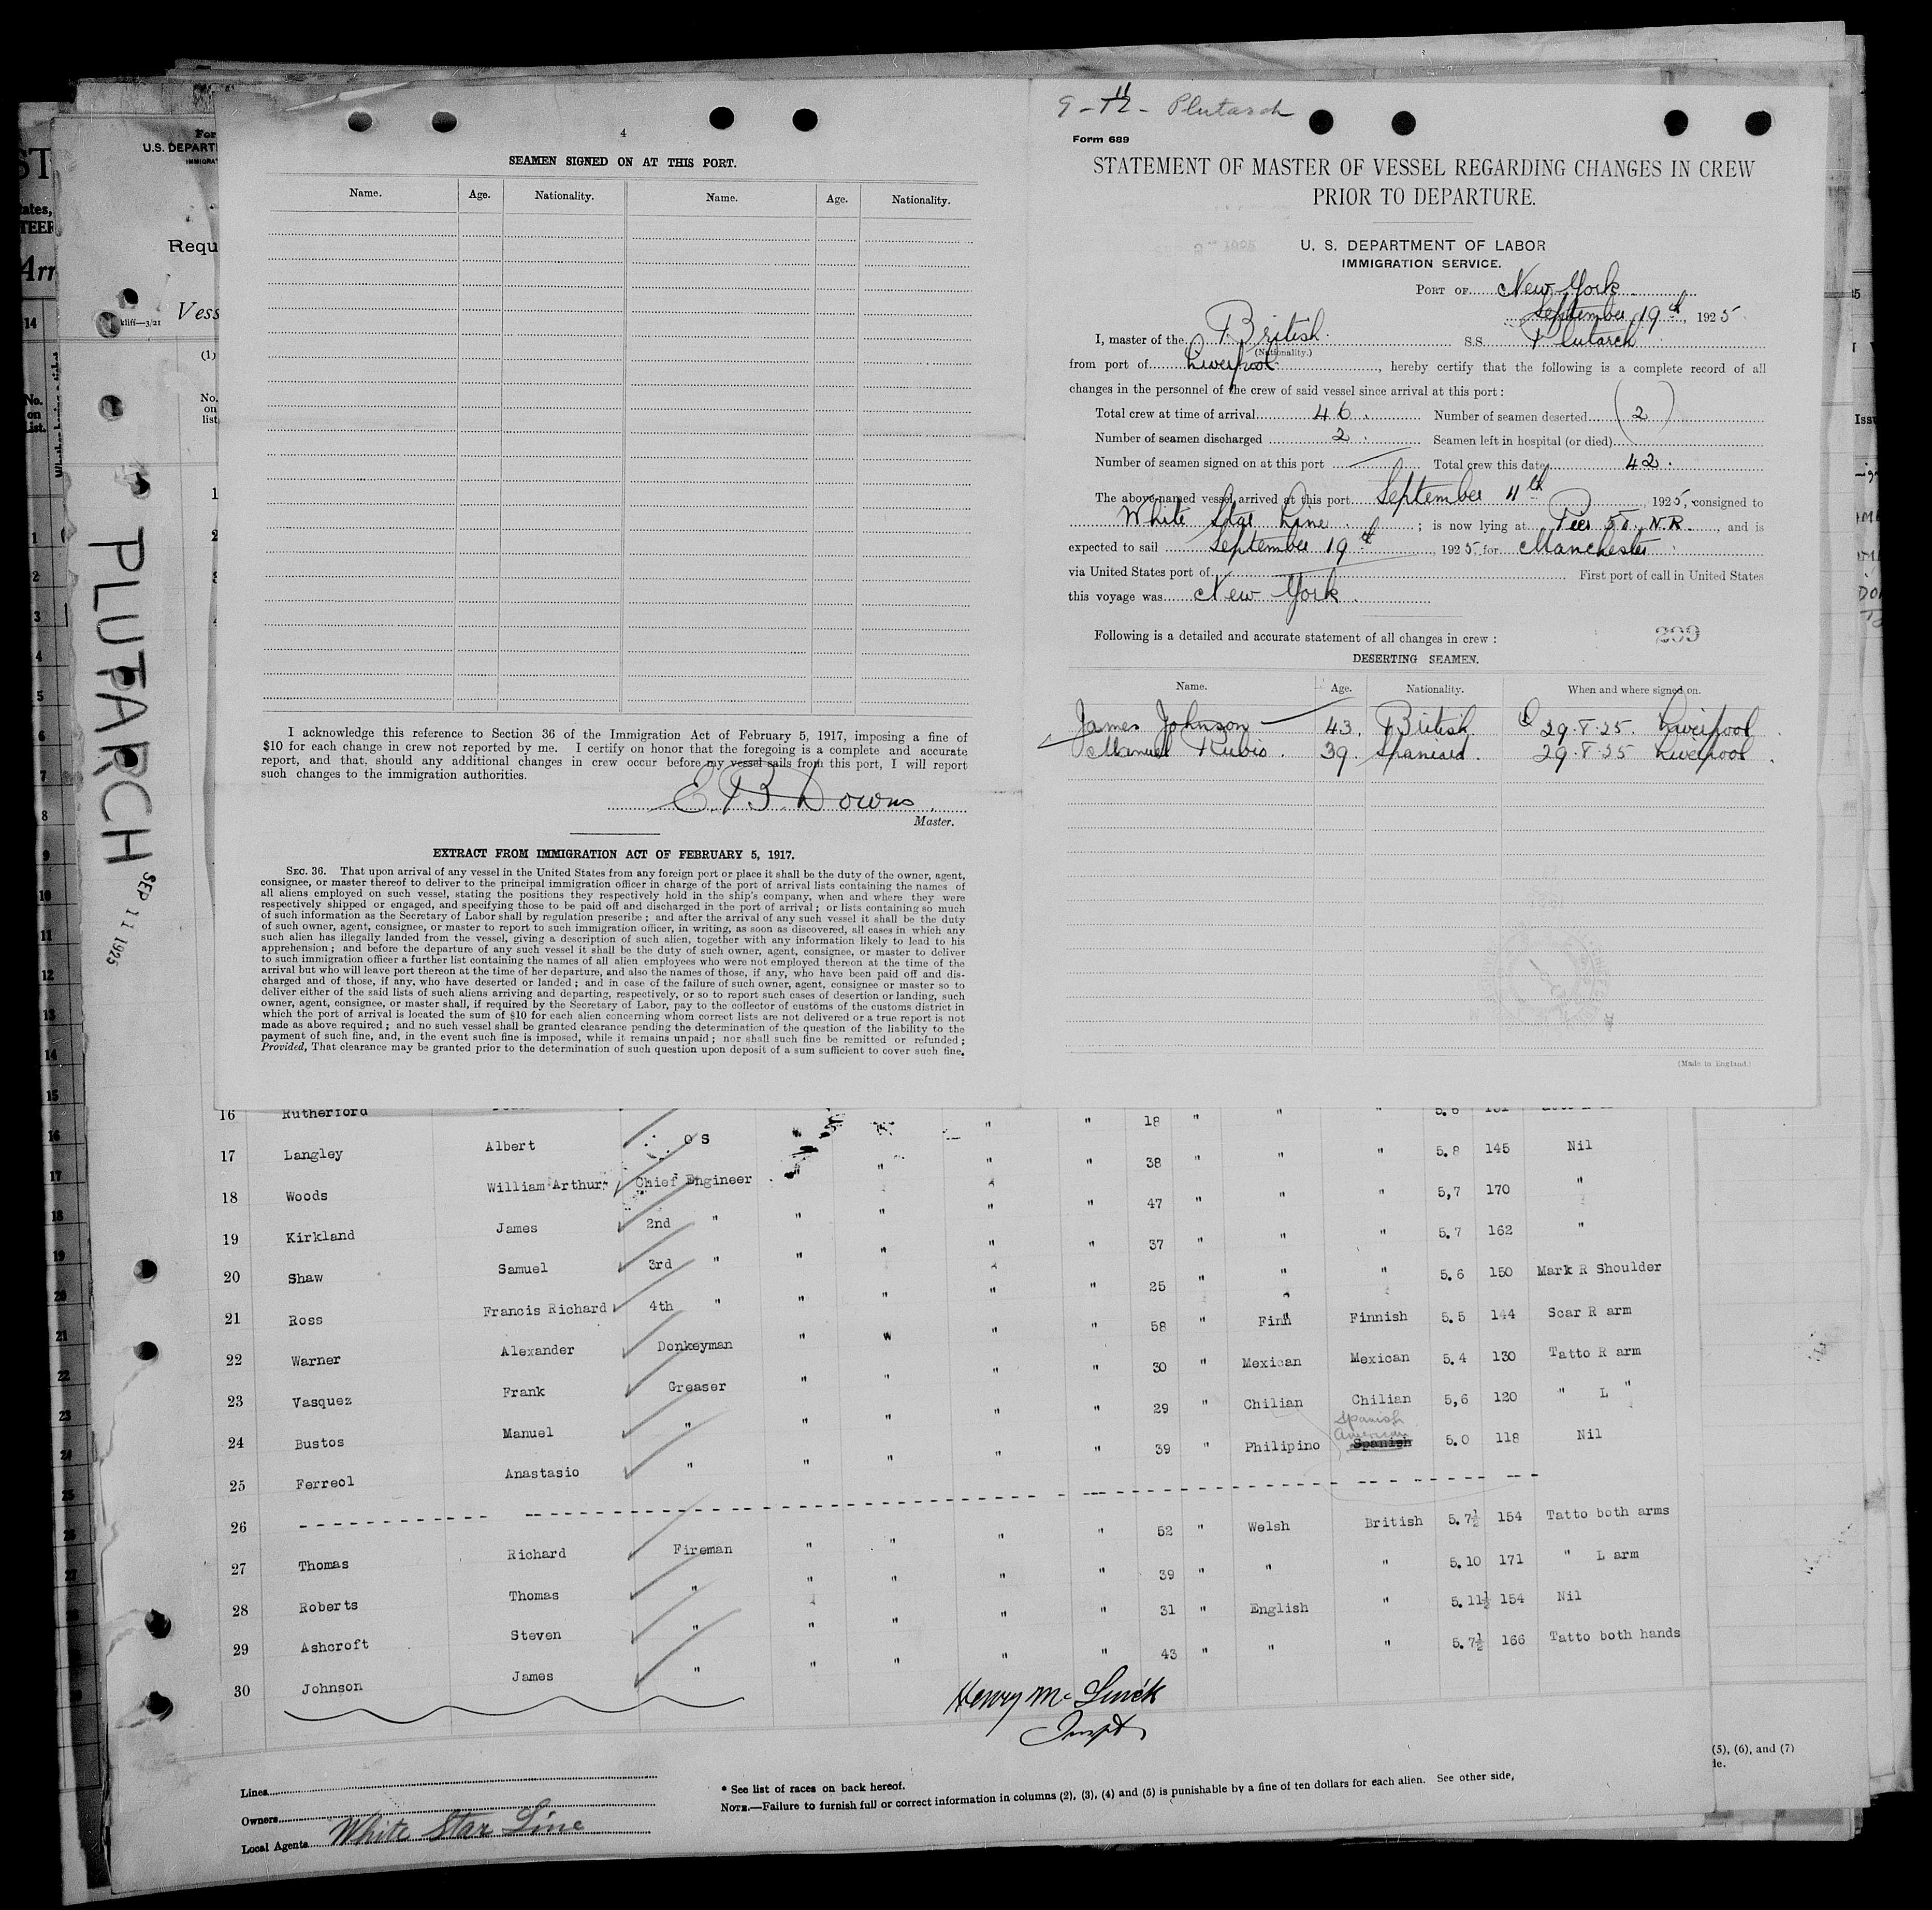 4
SEAMEN SIGNED ON AT THIS PORT.
Name. Age. Nationality. Name. Age. Nationality.
I acknowledge this reference to Section 36 of the Immigration Act of February 5, 1917, imposing a fine of
$10 for each change in crew not reported by me. I certify on honor that the foregoing is a complete and accurate
report, and that, should any additional changes in crew occur before my vessel sails from this port, I will report
such changes to the immigration authorities.
E. B. Downs
Master.
EXTRACT FROM IMMIGRATION ACT OF FEBRUARY 5, 1917.
SEC. 36. That upon arrival of any vessel in the United States from any foreign port or place it shall be the duty of the owner, agent,
consignee, or master thereof to deliver to the principal immigration officer in charge of the port of arrival lists containing the names of
all aliens employed on such vessel, stating the positions they respectively hold in the ship's company, when and where they were
respectively shipped or engaged, and specifying those to be paid off and discharged in the port of arrival; or lists containing so much
of such information as the Secretary of Labor shall by regulation prescribe; and after the arrival of any such vessel it shall be the duty
of such owner, agent, consignee, or master to report to such immigration officer, in writing, as soon as discovered, all cases in which any
such alien has illegally landed from the vessel, giving a description of such alien, together with any information likely to lead to his
apprehension; and before the departure of any such vessel it shall be the duty of such owner, agent, consignee, or master to deliver
to such immigration officer a further list containing the names of all alien employees who were not employed thereon at the time of the
arrival but who will leave port thereon at the time of her departure, and also the names of those, if any, who have been paid off and dis-
charged and of those, if any, who have deserted or landed; and in case of the failure of such owner, agent, consignee or master so to
deliver either of the said lists of such aliens arriving and departing, respectively, or so to report such cases of desertion or landing, such
owner, agent, consignee, or master shall, if required by the Secretary of Labor, pay to the collector of customs of the customs district in
which the port of arrival is located the sum of $10 for each alien concerning whom correct lists are not delivered or a true report is not
made as above required; and no such vessel shall be granted clearance pending the determination of the question of the liability to the
payment of such fine, and, in the event such fine is imposed, while it remains unpaid; nor shall such fine be remitted or refunded;
Provided, That clearance may be granted prior to the determination of such question upon deposit of a sum sufficient to cover such fine.
9-11- Plutarch
Form 689
STATEMENT OF MASTER OF VESSEL REGARDING CHANGES IN CREW
PRIOR TO DEPARTURE.
U. S. DEPARTMENT OF LABOR
IMMIGRATION SERVICE.
PORT OF New York
September 19th, 1925
I, master of the British S.S. Plutarch
(Nationality.)
from port of Liverpool, hereby certify that the following is a complete record of all
changes in the personnel of the crew of said vessel since arrival at this port:
Total crew at time of arrival 46. Number of seamen deserted (2)
Number of seamen discharged 2. Seamen left in hospital (or died)
Number of seamen signed on at this port Total crew this date 42.
The above-named vessel arrived at this port September 11th, 1925, consigned to
White Star Line; is now lying at Pier 50. N.R., and is
expected to sail September 19th, 1925 for Manchester
via United States port of First port of call in United States
this voyage was New York.
Following is a detailed and accurate statement of all changes in crew:
209
DESERTING SEAMEN.
Name. Age. Nationality. When and where signed on.
James Johnson 43. British 29.8.25. Liverpool
Manuel Rubio. 39. Spaniard. 29.8.25 Liverpool.
(Made in England.)
PLUTARCH
SEP 11 1925
16 Rutherford 18 " " " 5.6
17 Langley Albert O S " " 38 " " " 5.8 145 Nil
18 Woods William Arthur Chief Engineer " " " " 47 " " " 5,7 170 "
19 Kirkland James 2nd " " " " " 37 " " " 5.7 162 "
20 Shaw Samuel 3rd " " " " " 25 " " " 5.6 150 Mark R Shoulder
21 Ross Francis Richard 4th " " " " " 58 " Finn Finnish 5.5 144 Scar R arm
22 Warner Alexander Donkeyman " " " " 30 " Mexican Mexican 5.4 130 Tatto R arm
23 Vasquez Frank Greaser " " " " 29 " Chilian Chilian 5,6 120 " L "
Spanish
American
24 Bustos Manuel " " " " " 39 " Philipino Spanish 5.0 118 Nil
25 Ferreol Anastasio " " "
26 52 " Welsh British 5.7½ 154 Tatto both arms
27 Thomas Richard Fireman " " " " 39 " " " 5.10 171 " L arm
28 Roberts Thomas " " " " " 31 " English " 5.11½ 154 Nil
29 Ashcroft Steven " " " " " 43 " " " 5.7½ 166 Tatto both hands
30 Johnson James " " "
Lines
Owners
Local Agents White Star Line
* See list of races on back hereof.
NOTE.—Failure to furnish full or correct information in columns (2), (3), (4) and (5) is punishable by a fine of ten dollars for each alien. See other side.
(5), (6), and (7)